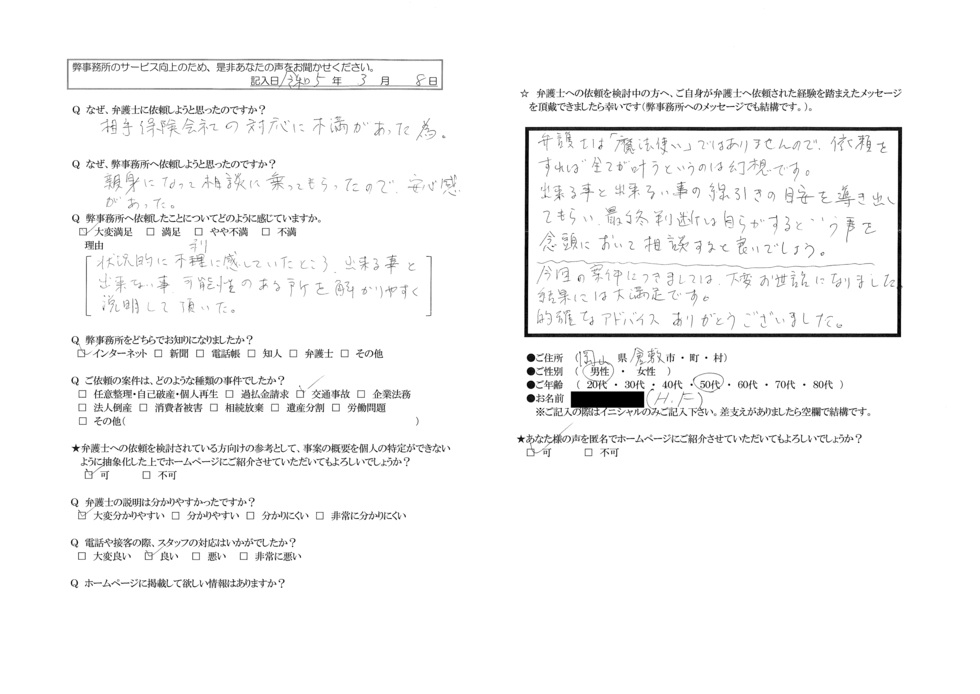 弊事務所のサービス向上のため、是非あなたの声をお聞かせください。
記入日 令和 5 年 3 月 8 日
Q なぜ、弁護士に依頼しようと思ったのですか?
相手保険会社の対応に不満があった為。
Q なぜ、弊事務所へ依頼しようと思ったのですか?
親身になって相談に乗ってもらったので、安心感
があった。
Q 弊事務所へ依頼したことについてどのように感じていますか。
☑ 大変満足 □ 満足 □ やや不満 □ 不満
理由
利
状況的に不種に感じていたところ、出来る事と
出来ない事 可能性のある所を解かりやすく
説明して頂いた。
Q 弊事務所をどちらでお知りになりましたか?
☑ インターネット □ 新聞 □ 電話帳 □ 知人 □ 弁護士 □ その他
Q ご依頼の案件は、どのような種類の事件でしたか?
□ 任意整理・自己破産・個人再生 □ 過払金請求 ☑ 交通事故 □ 企業法務
□ 法人倒産 □ 消費者被害 □ 相続放棄 □ 遺産分割 □ 労働問題
□ その他( )
★弁護士への依頼を検討されている方向けの参考として、事案の概要を個人の特定ができない
ように抽象化した上でホームページにご紹介させていただいてもよろしいでしょうか?
☑ 可 □ 不可
Q 弁護士の説明は分かりやすかったですか?
☑ 大変分かりやすい □ 分かりやすい □ 分かりにくい □ 非常に分かりにくい
Q 電話や接客の際、スタッフの対応はいかがでしたか?
□ 大変良い ☑ 良い □ 悪い □ 非常に悪い
Q ホームページに掲載して欲しい情報はありますか?
☆ 弁護士への依頼を検討中の方へ、ご自身が弁護士へ依頼された経験を踏まえたメッセージ
を頂戴できましたら幸いです(弊事務所へのメッセージでも結構です。)。
弁護士は「魔法使い」ではありませんので、依頼を
すれば全てが叶うというのは幻想です。
出来る事と出来ない事の線引きの目安を導き出し
てもらい、最終判断は自らがするという事を
念頭において相談すると良いでしょう。
今回の案件につきましては、大変お世話になりました。
結果には大満足です。
的確なアドバイス ありがとうございました。
●ご住所 (岡山 県 倉敷 市・町・村)
●ご性別 ( 男性 ・ 女性 )
●ご年齢 ( 20代 ・ 30代 ・ 40代 ・ 50代 ・ 60代 ・ 70代 ・ 80代 )
●お名前 (H.F)
※ご記入の際はイニシャルのみご記入下さい。差支えがありましたら空欄で結構です。
★あなた様の声を匿名でホームページにご紹介させていただいてもよろしいでしょうか?
☑ 可 □ 不可